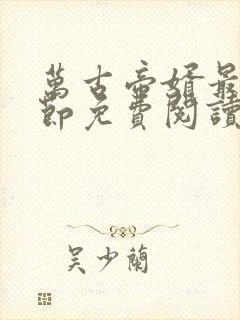 萬古帝婿最
節免費閱讀
吴少蘭